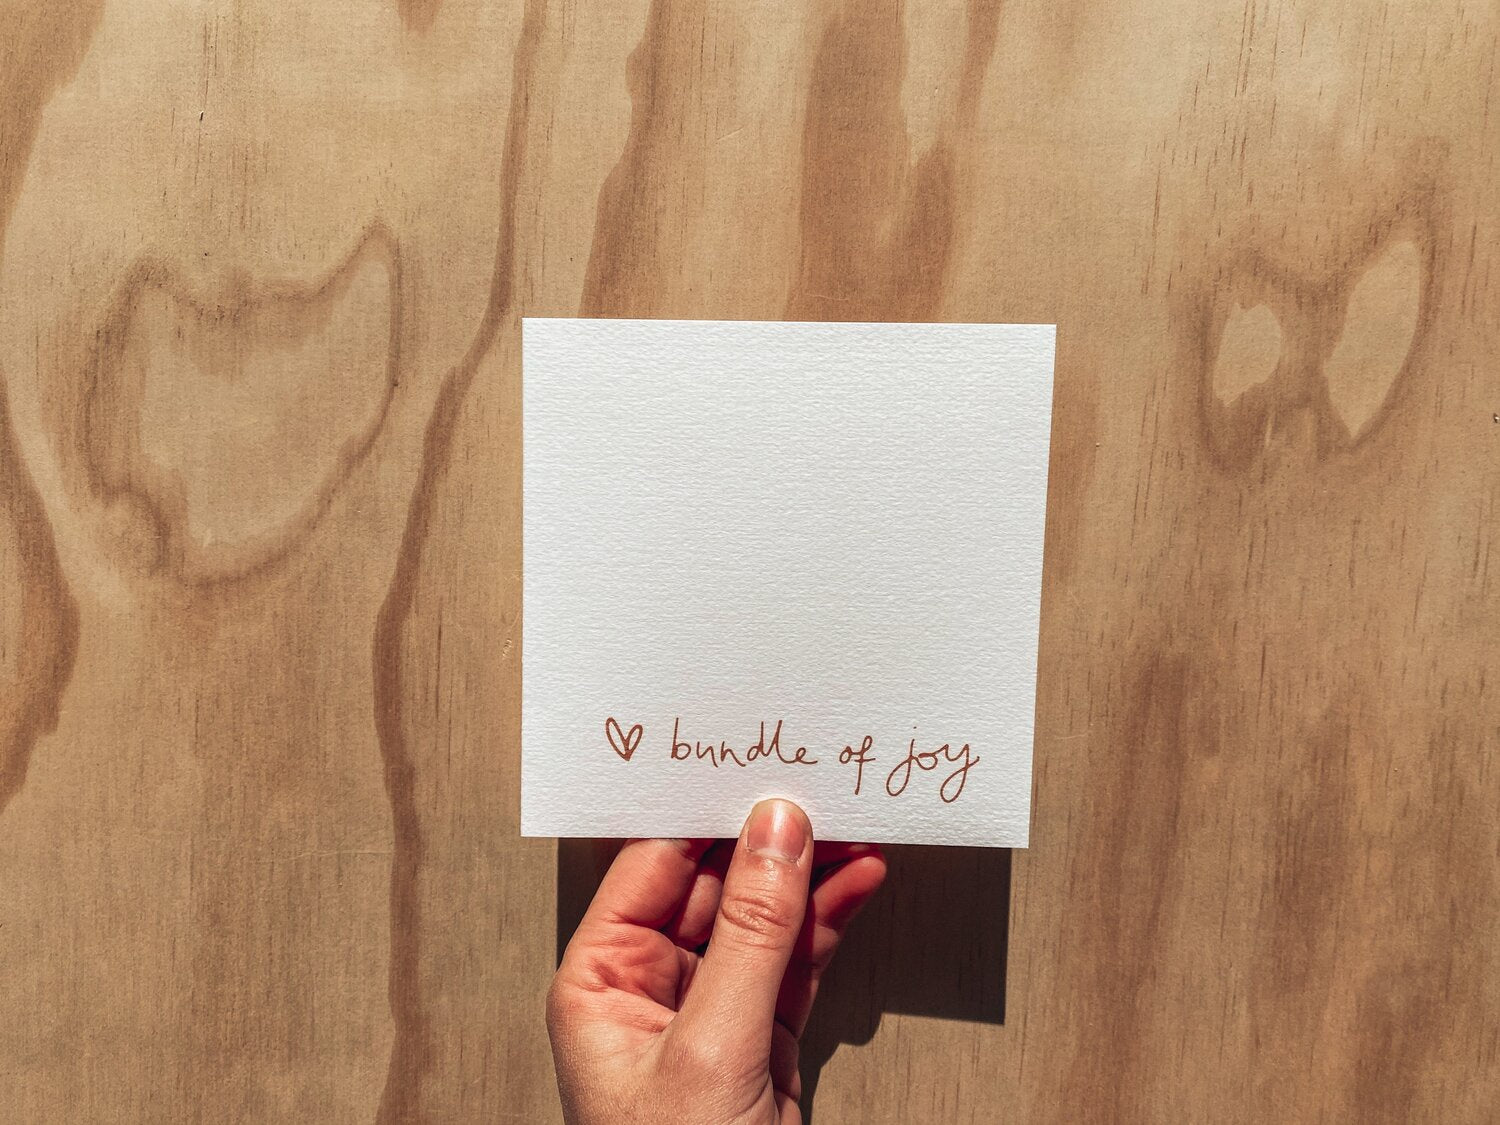 ♡ bundle of joy